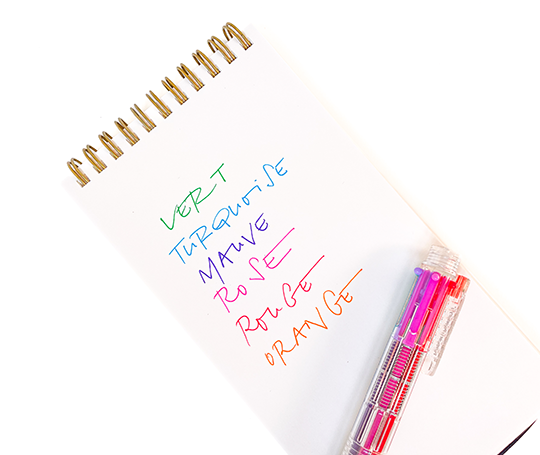 VERT
TURQUOISE
MAUVE
ROSE
ROUGE
ORANGE